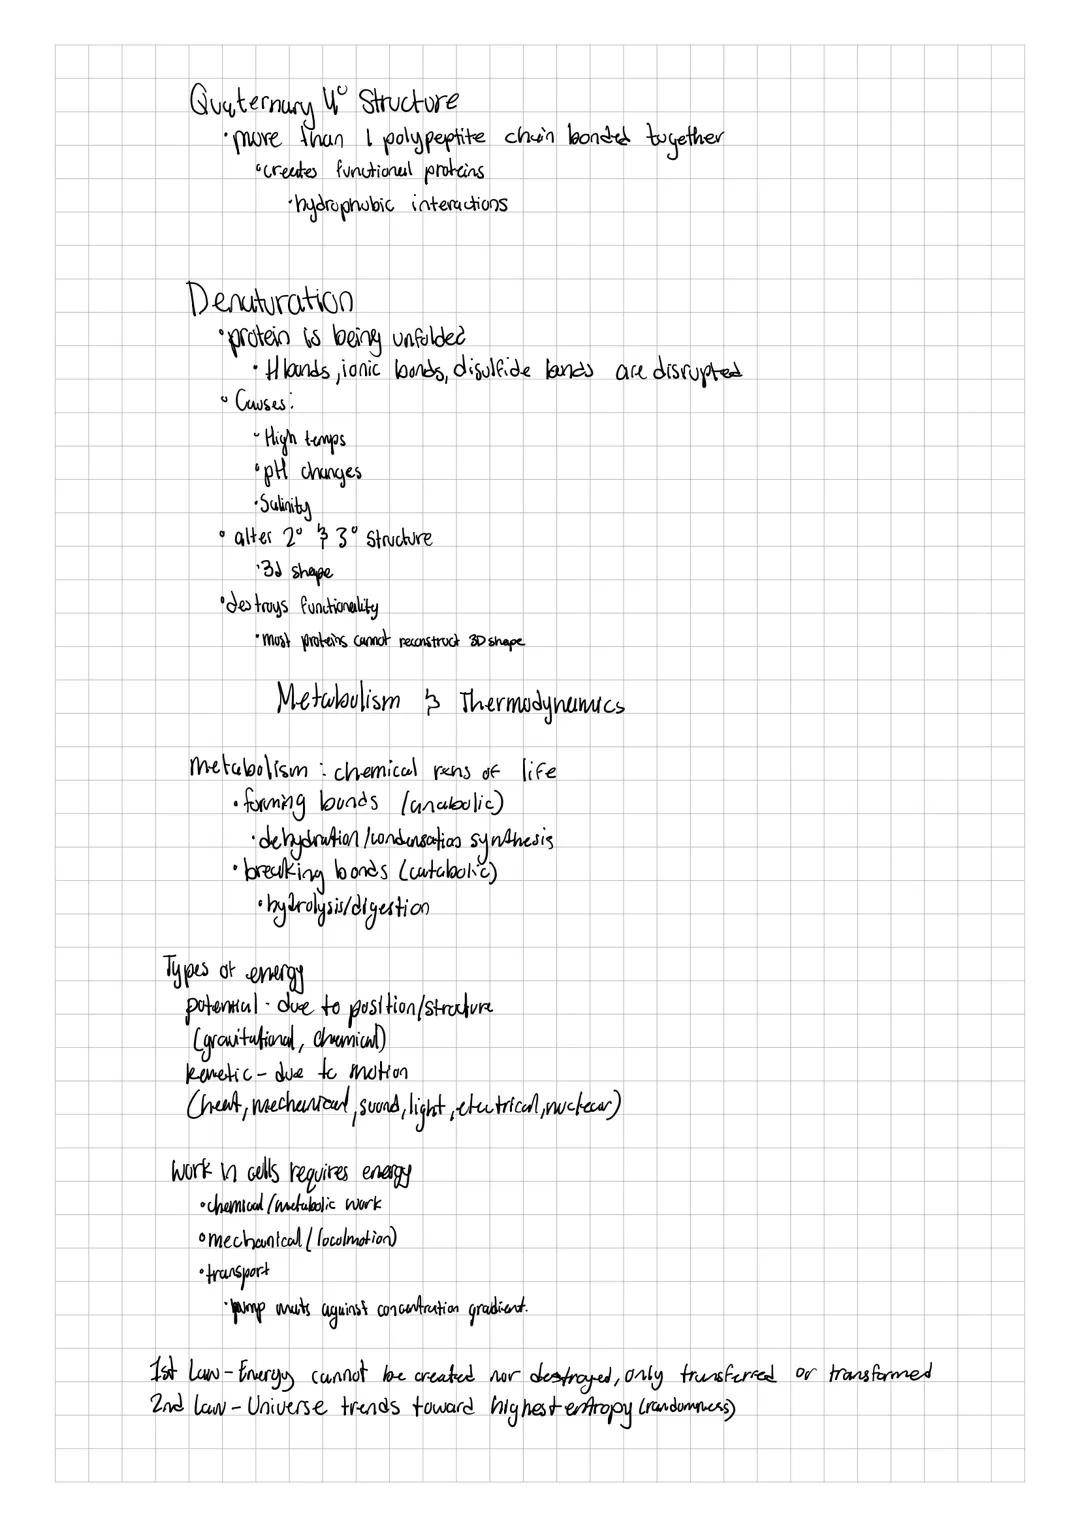 Quaternary 4° Structure
•more than 1 polypeptite chain bonded together
•creates functional proteins
•hydrophobic interactions
Denaturation
•protein is being unfolded
•H bonds, ionic bonds, disulfide bonds are disrupted
•Causes:
•High temps
•pH changes
•Salinity
•alter 2° & 3° structure
•3d shape
•destroys functionality
•most proteins cannot reconstruct 3D shape
Metabolism & Thermodynamics
metabolism: chemical rxns of life
•forming bonds (anabolic)
•dehydration/condensation synthesis
•breaking bonds (catabolic)
•hydrolysis/digestion
Types of energy
potential - due to position/structure
(gravitational, chemical)
kenetic - due to motion
(heat, mechanical, sound, light, electrical, nuclear)
work in cells requires energy
•chemical/metabolic work
•mechanical (locolmotion)
•transport
•pump against concentration gradient.
1st Law - Energy cannot be created nor destroyed, only transferred or transformed
2nd Law - Universe trends toward highest entropy (randomness)